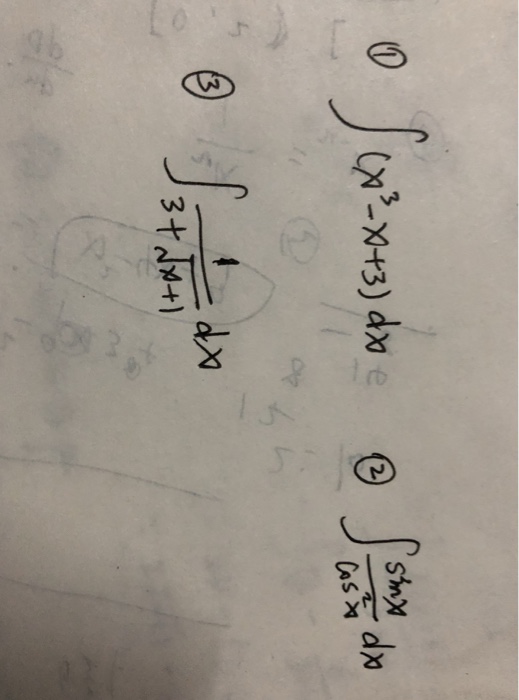 ① ∫(x³-x+3)dx ② ∫ sinx/cos²x dx
③ ∫ 1/(3+√(x+1)) dx